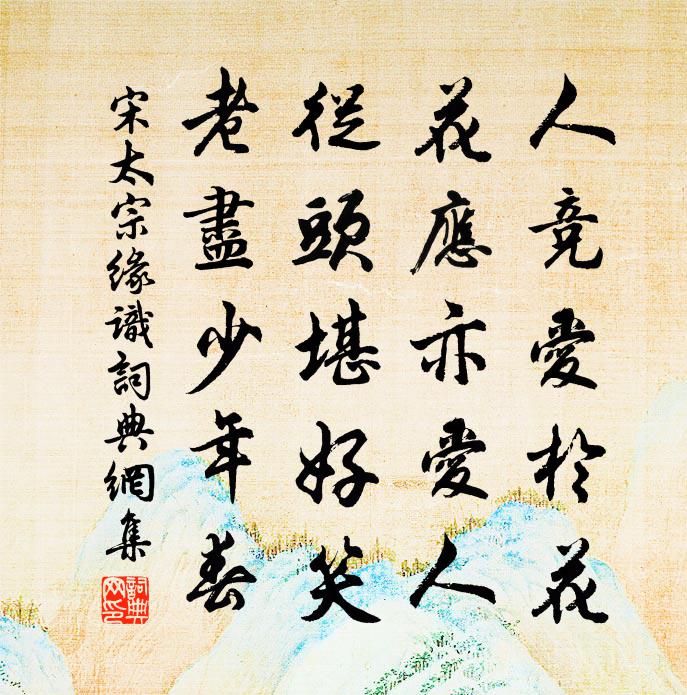 人竞愛於花
花應亦愛人
從頭堪好笑
老盡少年春
宋太宗緣識詞典網集
詞典